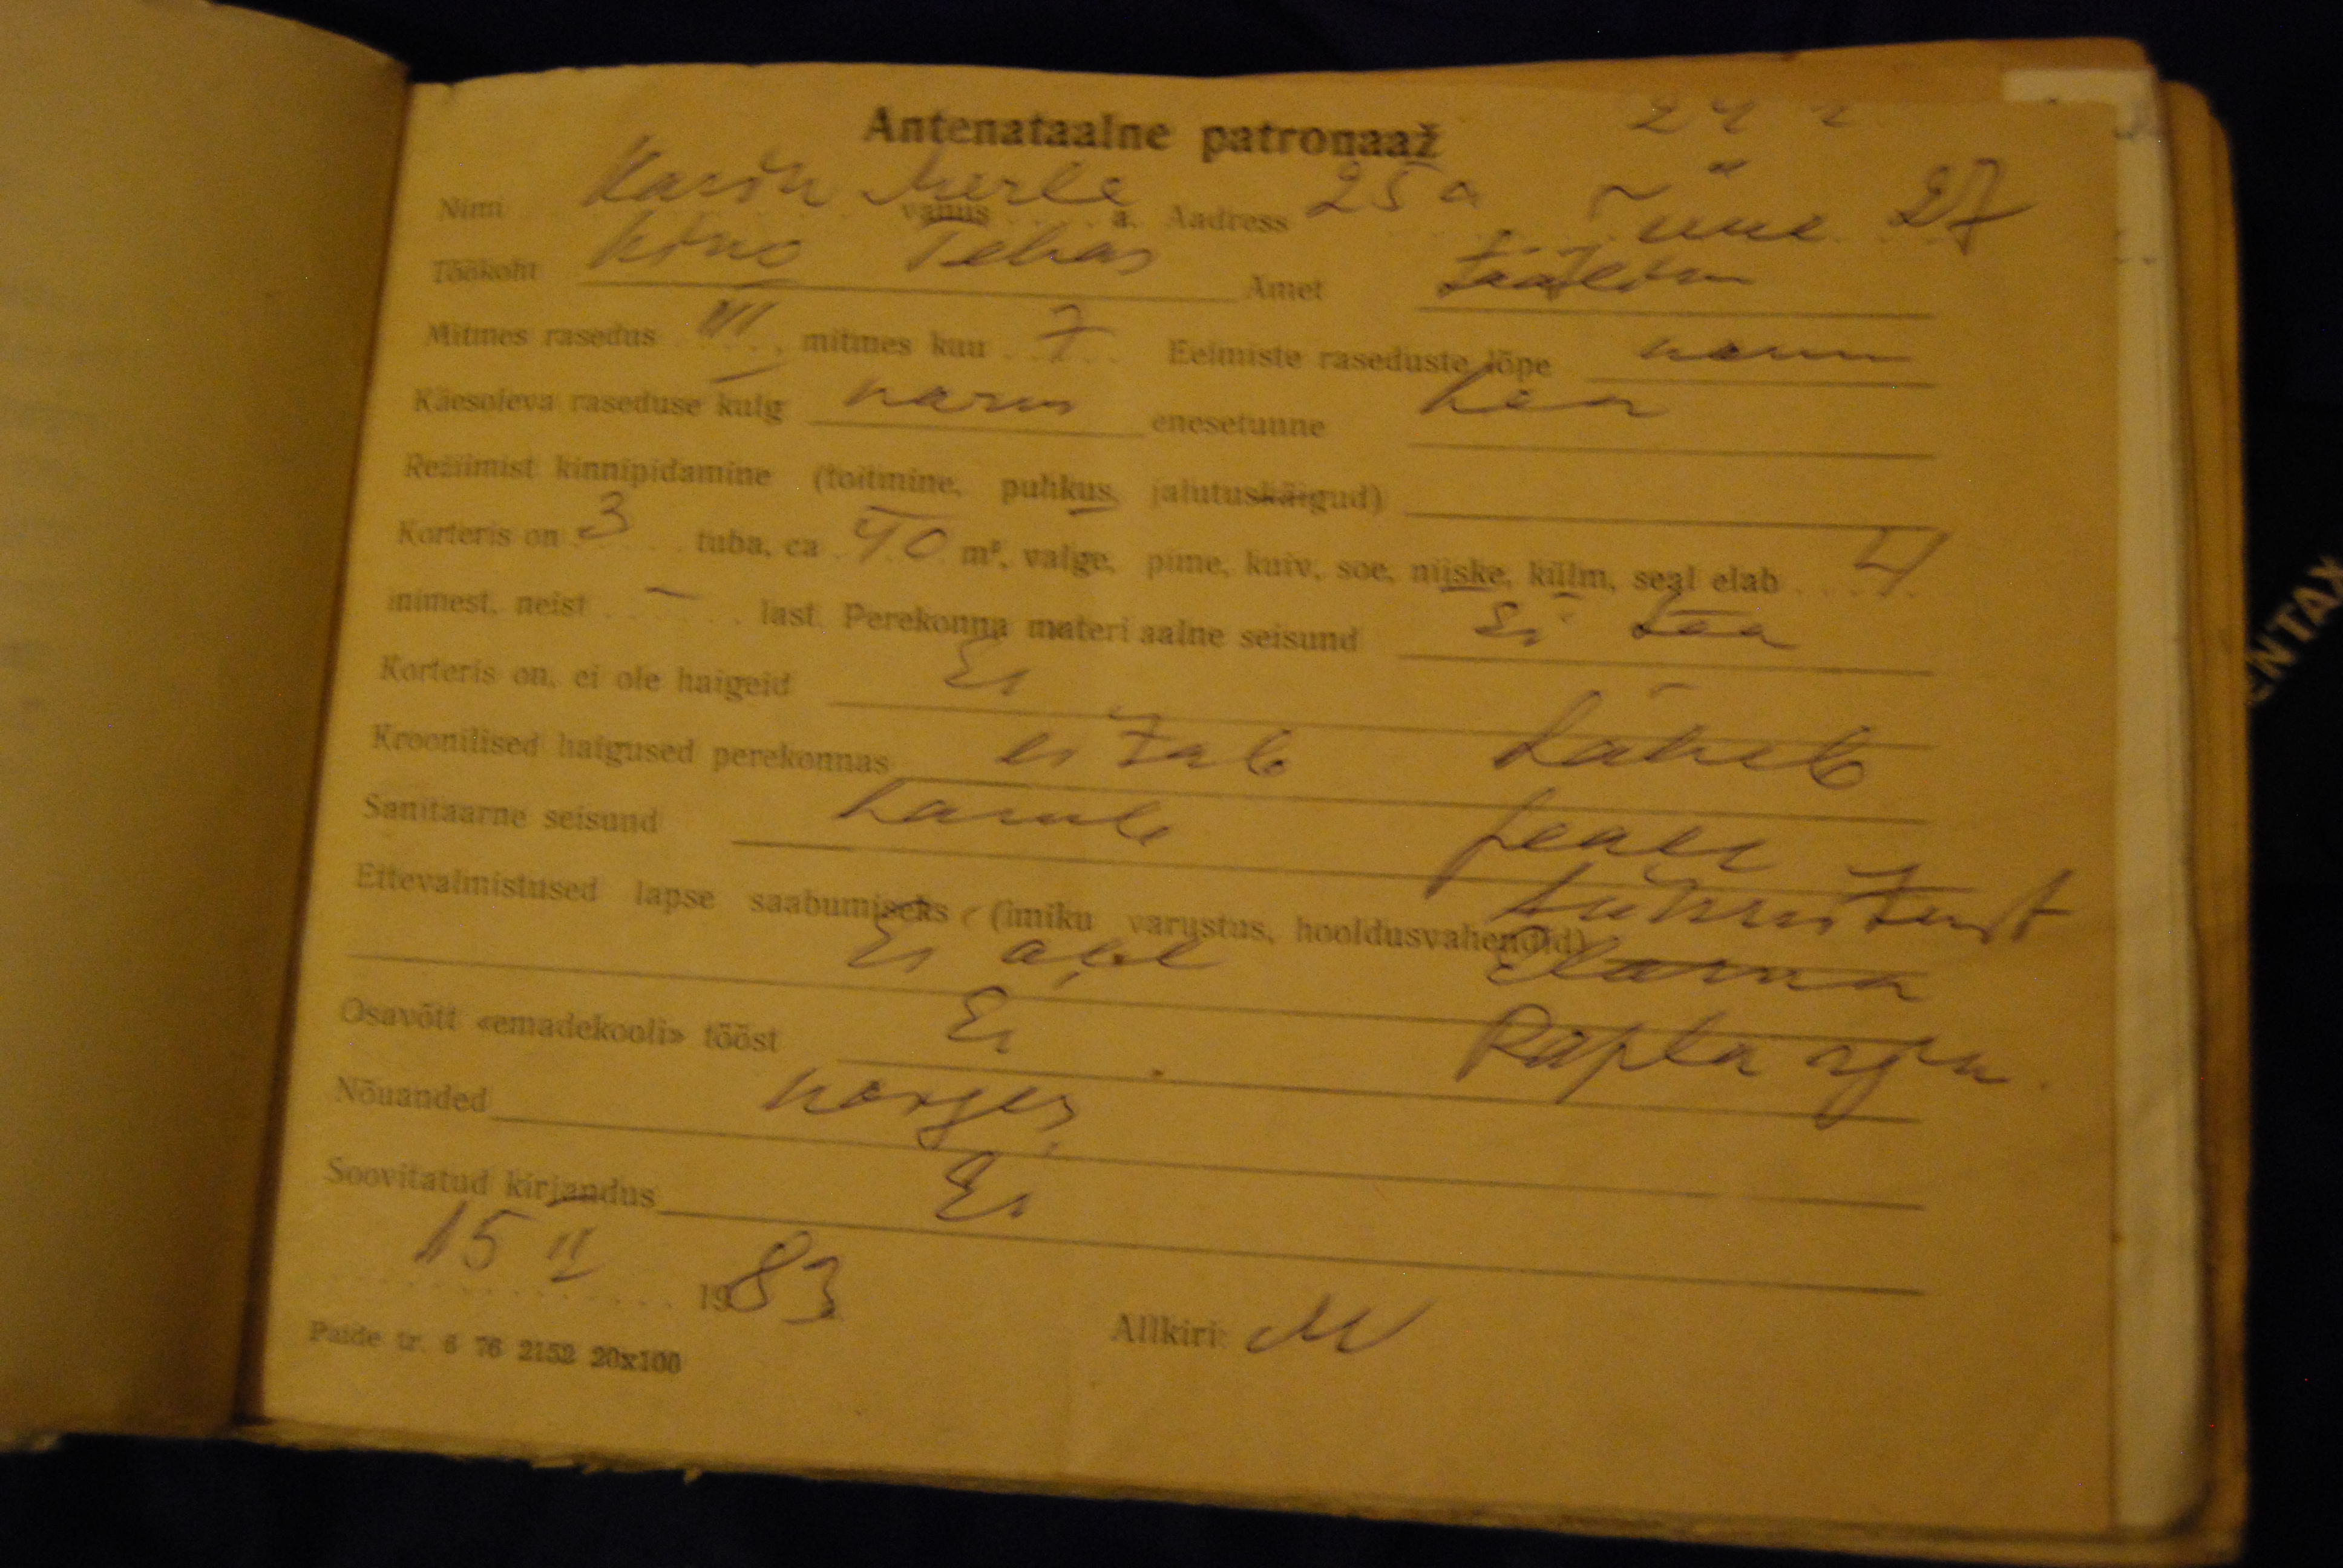 Antenataalne patronaaž
Nimi Karin Merle vanus 25 a. Aadress 27
Töökoht Kino Tehas Amet
Mitmes rasedus III, mitmes kuu 7 Eelmiste raseduste lõpe norm
Käesoleva raseduse kulg norm enesetunne hea
Režiimist kinnipidamine (toitmine, puhkus, jalutuskäigud)
Korteris on 3 tuba, ca 40 m², valge, pime, kuiv, soe, niiske, külm, seal elab 4
inimest, neist – last. Perekonna materiaalne seisund Ei tea
Korteris on, ei ole haigeid Ei
Kroonilised haigused perekonnas ei Läheb
Sanitaarne seisund peale
Ettevalmistused lapse saabumiseks (imiku varustus, hooldusvahendid) sünnitust
Ei ole Elama
Osavõtt «emadekooli» tööst Ei Rapla raj.
Nõuanded
Soovitatud kirjandus Ei
15 II 1983
Allkiri:
Paide tr. 6 76 2152 20x100
ENTAX